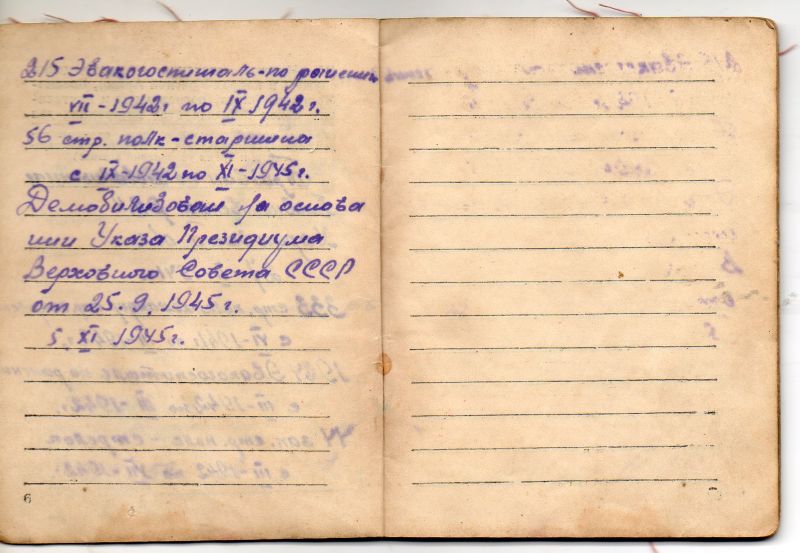 215 Эвакогоспиталь-по ранению
VII-1942г по IX 1942г.
56 стр. полк-старшина
с IX-1942 по XI-1945г.
Демобилизован на основа
нии Указа Президиума
Верховного Совета СССР
от 25.9.1945г.
5. XI 1945г.
6